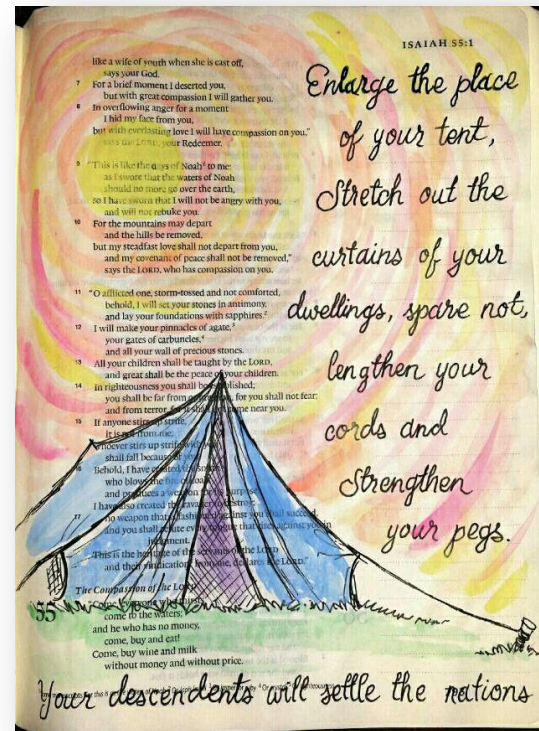 ISAIAH 55:1
like a wife of youth when she is cast off,
says your God.
7 For a brief moment I deserted you,
but with great compassion I will gather you.
8 In overflowing anger for a moment
I hid my face from you,
but with everlasting love I will have compassion on you,"
says the LORD, your Redeemer.
9 "This is like the days of Noah¹ to me:
as I swore that the waters of Noah
should no more go over the earth,
so I have sworn that I will not be angry with you,
and will not rebuke you.
10 For the mountains may depart
and the hills be removed,
but my steadfast love shall not depart from you,
and my covenant of peace shall not be removed,"
says the LORD, who has compassion on you.
11 "O afflicted one, storm-tossed and not comforted,
behold, I will set your stones in antimony,
and lay your foundations with sapphires.²
12 I will make your pinnacles of agate,³
your gates of carbuncles,⁴
and all your wall of precious stones.
13 All your children shall be taught by the LORD,
and great shall be the peace of your children.
14 In righteousness you shall be established;
you shall be far from for you shall not fear;
and from terror, for it shall not come near you.
15 If anyone stirs up strife,
it is not from me;
whoever stirs up strife with you
shall fall because of you.
Behold, I have created the smith
who blows the
and produces a weapon for its purpose.
I have also created the ravager to destroy;
17 no weapon that is fashioned against you shall succeed,
and you shall refute every tongue that rises against you in
judgment.
This is the heritage of the servants of the LORD
and their vindication from me, declares the LORD."
The Compassion of the LORD
55
come to the waters;
and he who has no money,
come, buy and eat!
Come, buy wine and milk
without money and without price.
Enlarge the place
of your tent,
Stretch out the
curtains of your
dwellings, spare not,
lengthen your
cords and
Strengthen
your pegs.
Your descendents will settle the nations